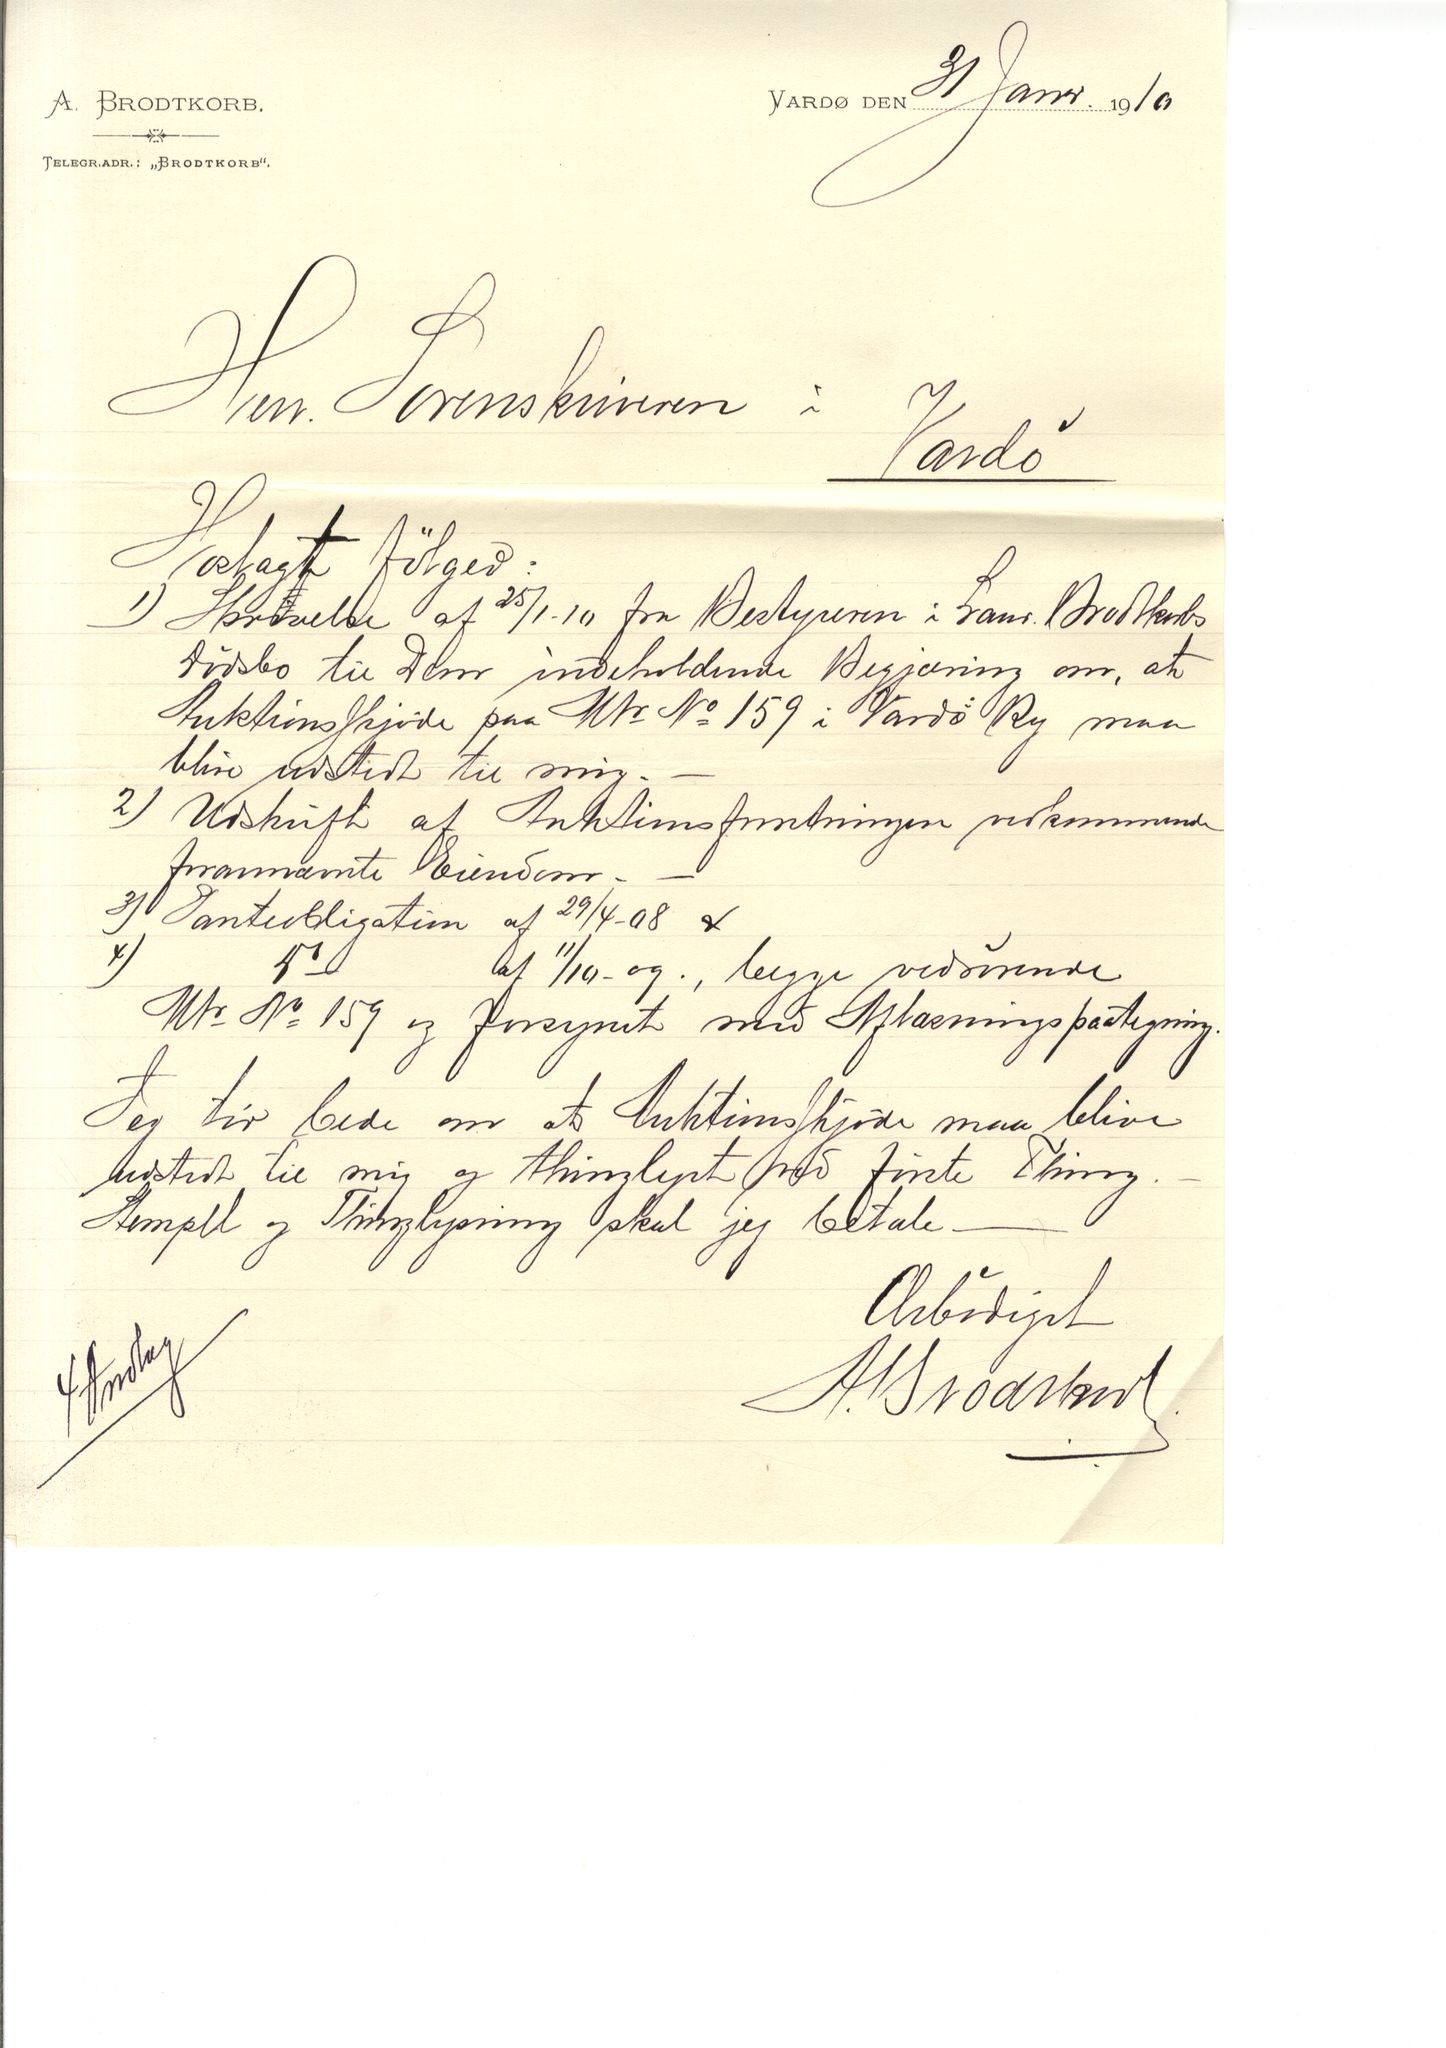 A. BRODTKORB.
TELEGR.ADR.: „BRODTKORB“.
VARDØ DEN 31 Januar. 1910
Herr. Sorenskriveren i
Vardö
Hoslagt fölger:
1) Skrivelse af 25/1-10 fra Bestyreren i Laur. Brodtkorbs
dödsbo til Dem indeholdende Begjæring om, at
Auktionsskjöde paa Mtr. No 159 i Vardö By maa
blive udstedt til mig. —
2) Udskrift af Auktionsforretningen vedkommende
forannævnte Eiendom. —
3) Panteobligation af 29/4-08 &
4) do af 11/10-09., begge vedrörende
Mtr. No 159 og forsynet med Aflæsningspaategning.
Jeg tör bede om at Auktionsskjöde maa blive
udstedt til mig og thinglyst ved förste Thing. —
Stempel og Thinglysning skal jeg betale —
Ærbödigst
A. Brodtkorb.
4 Indlag